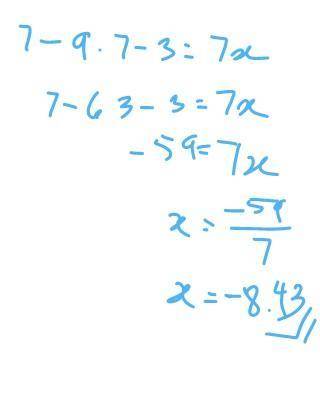 7 - 9 . 7 - 3 = 7x
7 - 63 - 3 = 7x
-59 = 7x
x = -59/7
x = -8.43